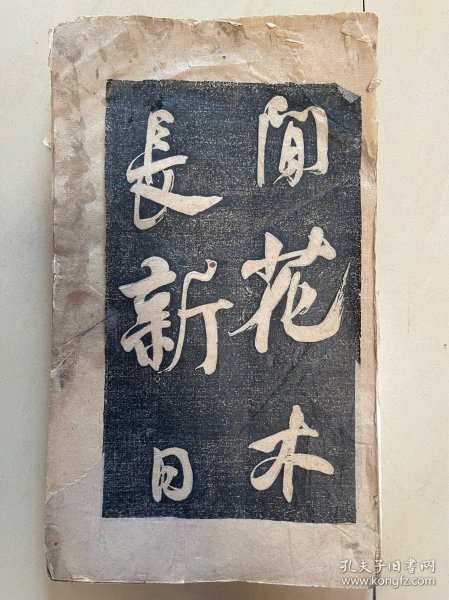 間花木
長新日
孔夫子旧书网
www.kongfz.com